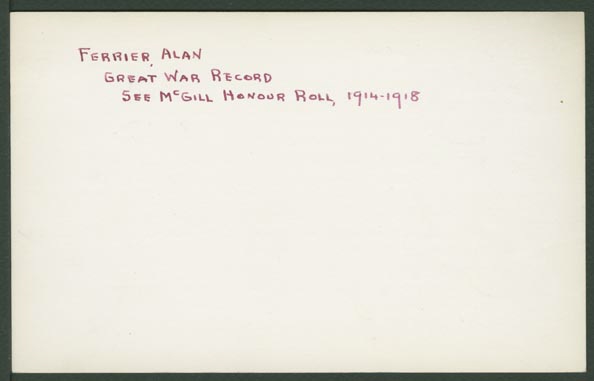 FERRIER, ALAN
GREAT WAR RECORD
SEE McGILL HONOUR ROLL, 1914-1918